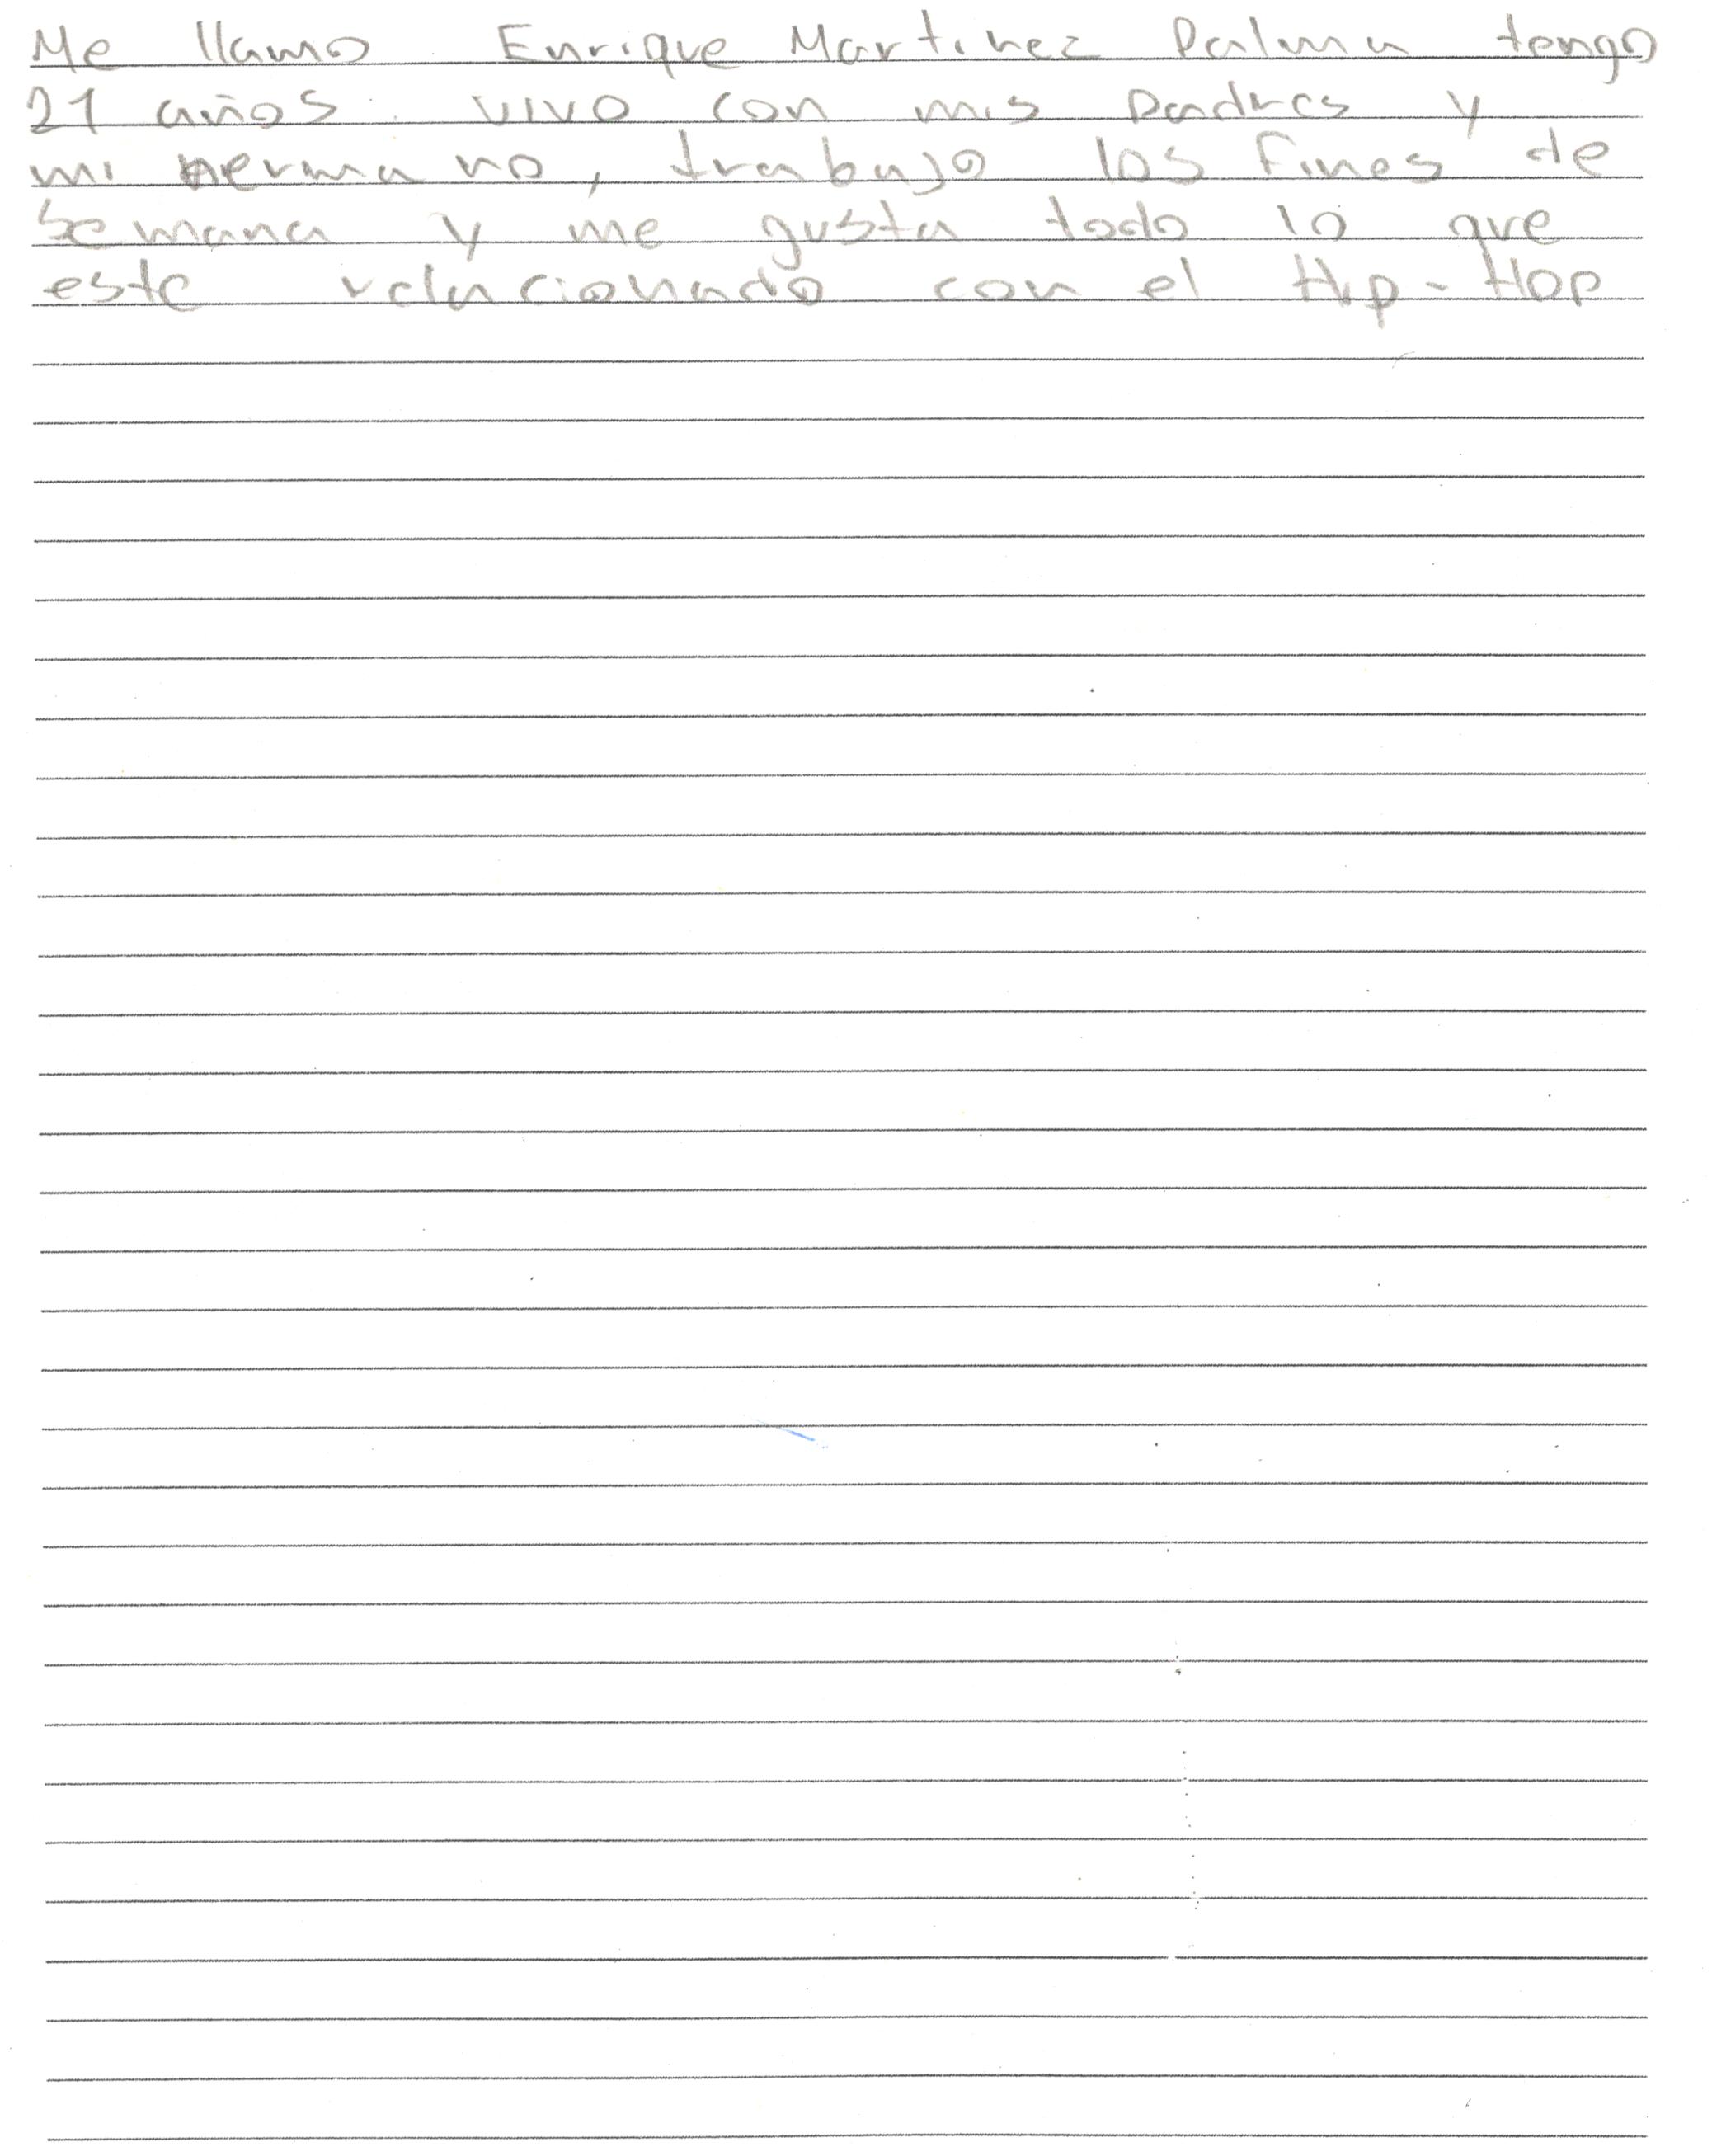 Me llamo Enrique Martinez Palma tengo
21 años. vivo con mis padres y
mi hermano, trabajo los fines de
semana y me gusta todo lo que
este relacionado con el Hip-Hop